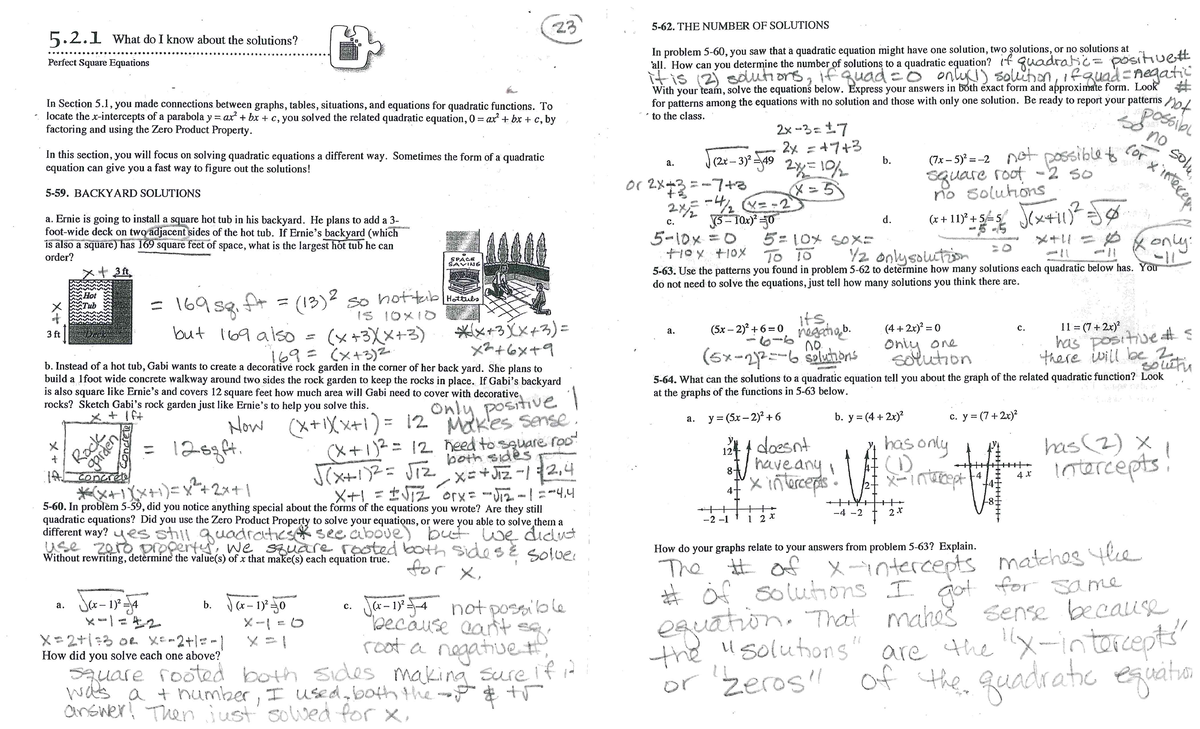 23
5.2.1 What do I know about the solutions?
Perfect Square Equations
In Section 5.1, you made connections between graphs, tables, situations, and equations for quadratic functions. To
locate the x-intercepts of a parabola y = ax² + bx + c, you solved the related quadratic equation, 0 = ax² + bx + c, by
factoring and using the Zero Product Property.
In this section, you will focus on solving quadratic equations a different way. Sometimes the form of a quadratic
equation can give you a fast way to figure out the solutions!
5-59. BACKYARD SOLUTIONS
a. Ernie is going to install a square hot tub in his backyard. He plans to add a 3-
foot-wide deck on two adjacent sides of the hot tub. If Ernie's backyard (which
is also a square) has 169 square feet of space, what is the largest hot tub he can
order?
x + 3 ft
Hot
Tub
x
+
3 ft
Deck
= 169 sq. ft = (13)² so hot tub
is 10x10
but 169 also = (x+3)(x+3)
169 = (x+3)²
SPACE
SAVING
Hottubs
*(x+3)(x+3) =
x²+6x+9
b. Instead of a hot tub, Gabi wants to create a decorative rock garden in the corner of her back yard. She plans to
build a 1foot wide concrete walkway around two sides the rock garden to keep the rocks in place. If Gabi's backyard
is also square like Ernie's and covers 12 square feet how much area will Gabi need to cover with decorative
rocks? Sketch Gabi's rock garden just like Ernie's to help you solve this.
only positive
makes sense.
x + 1ft
x
+
1ft
Rock
garden
Concrete
concrete
= 12 sq ft.
Now (x+1)(x+1) = 12
(x+1)² = 12 need to square root
both sides
√(x+1)² = √12 , x = +√12 -1 = 2.4
x+1 = ±√12 or x = -√12 -1 = -4.4
*(x+1)(x+1) = x²+2x+1
5-60. In problem 5-59, did you notice anything special about the forms of the equations you wrote? Are they still
quadratic equations? Did you use the Zero Product Property to solve your equations, or were you able to solve them a
different way? yes still quadratics (* see above) but we didnt
use zero property. We square rooted both sides & solve
for x.
Without rewriting, determine the value(s) of x that make(s) each equation true.
a. √(x – 1)² = √4
x-1 = ±2
x=2+1=3 or x=-2+1=-1
b. √(x – 1)² = √0
x-1 = 0
x = 1
c. √(x – 1)² = √-4 not possible
because cant sq.
root a negative #.
How did you solve each one above?
square rooted both sides making sure if it
was a + number, I used both the -√ & +√
answer! Then just solved for x.
5-62. THE NUMBER OF SOLUTIONS
In problem 5-60, you saw that a quadratic equation might have one solution, two solutions, or no solutions at
all. How can you determine the number of solutions to a quadratic equation? if quadratic = positive #
it is (2) solutions, if quad = 0 only (1) solution, if quad = negative
# not possible so no solu
(or x intercept
With your team, solve the equations below. Express your answers in both exact form and approximate form. Look
for patterns among the equations with no solution and those with only one solution. Be ready to report your patterns
to the class.
a. √(2x – 3)² = √49
2x-3 = ±7
2x = +7+3
2x/2 = 10/2
x = 5
or 2x-3 = -7+3
+3
2x/2 = -4/2 x = -2
b. (7x – 5)² = –2 not possible to
square root -2 so
no solutions
c. √(5 – 10x)² = √0
5-10x = 0
+10x +10x
5 = 10x so x =
10 10
1/2 only solution
d. (x + 11)² + 5 = 5
-5 -5
= 0
√(x+11)² = √0
x+11 = 0
-11 -11
x only:
-11
5-63. Use the patterns you found in problem 5-62 to determine how many solutions each quadratic below has. You
do not need to solve the equations, just tell how many solutions you think there are.
a. (5x – 2)² + 6 = 0
-6 -6
(5x-2)² = -6
its
negative
no
solutions
b. (4 + 2x)² = 0
only one
solution
c. 11 = (7 + 2x)²
has positive # s
there will be 2
soluti
5-64. What can the solutions to a quadratic equation tell you about the graph of the related quadratic function? Look
at the graphs of the functions in 5-63 below.
a. y = (5x – 2)² + 6
b. y = (4 + 2x)²
c. y = (7 + 2x)²
y
12
8
4
-2 -1 1 2 x
doesnt
have any
x intercepts.
y
4
2
-4 -2 2 x
has only
(1)
x-intercept
y
-4 4 x
-4
-8
has (2) x
intercepts!
How do your graphs relate to your answers from problem 5-63? Explain.
The # of x-intercepts matches the
# of solutions I got for same
equation. That makes sense because
the "solutions" are the "x-intercepts"
or "zeros" of the quadratic equation